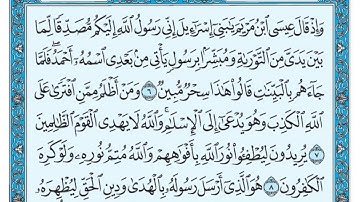 وَإِذْ قَالَ عِيسَى ابْنُ مَرْيَمَ يَٰبَنِىٓ إِسْرَٰٓءِيلَ إِنِّى رَسُولُ ٱللَّهِ إِلَيْكُم مُّصَدِّقًا لِّمَا
بَيْنَ يَدَىَّ مِنَ ٱلتَّوْرَىٰةِ وَمُبَشِّرًۢا بِرَسُولٍ يَأْتِى مِنۢ بَعْدِى ٱسْمُهُۥٓ أَحْمَدُ فَلَمَّا
جَآءَهُم بِٱلْبَيِّنَٰتِ قَالُوا۟ هَٰذَا سِحْرٌ مُّبِينٌ ٦ وَمَنْ أَظْلَمُ مِمَّنِ ٱفْتَرَىٰ عَلَى
ٱللَّهِ ٱلْكَذِبَ وَهُوَ يُدْعَىٰٓ إِلَى ٱلْإِسْلَٰمِ وَٱللَّهُ لَا يَهْدِى ٱلْقَوْمَ ٱلظَّٰلِمِينَ
٧ يُرِيدُونَ لِيُطْفِـُٔوا۟ نُورَ ٱللَّهِ بِأَفْوَٰهِهِمْ وَٱللَّهُ مُتِمُّ نُورِهِۦ وَلَوْ كَرِهَ
ٱلْكَٰفِرُونَ ٨ هُوَ ٱلَّذِىٓ أَرْسَلَ رَسُولَهُۥ بِٱلْهُدَىٰ وَدِينِ ٱلْحَقِّ لِيُظْهِرَهُۥ